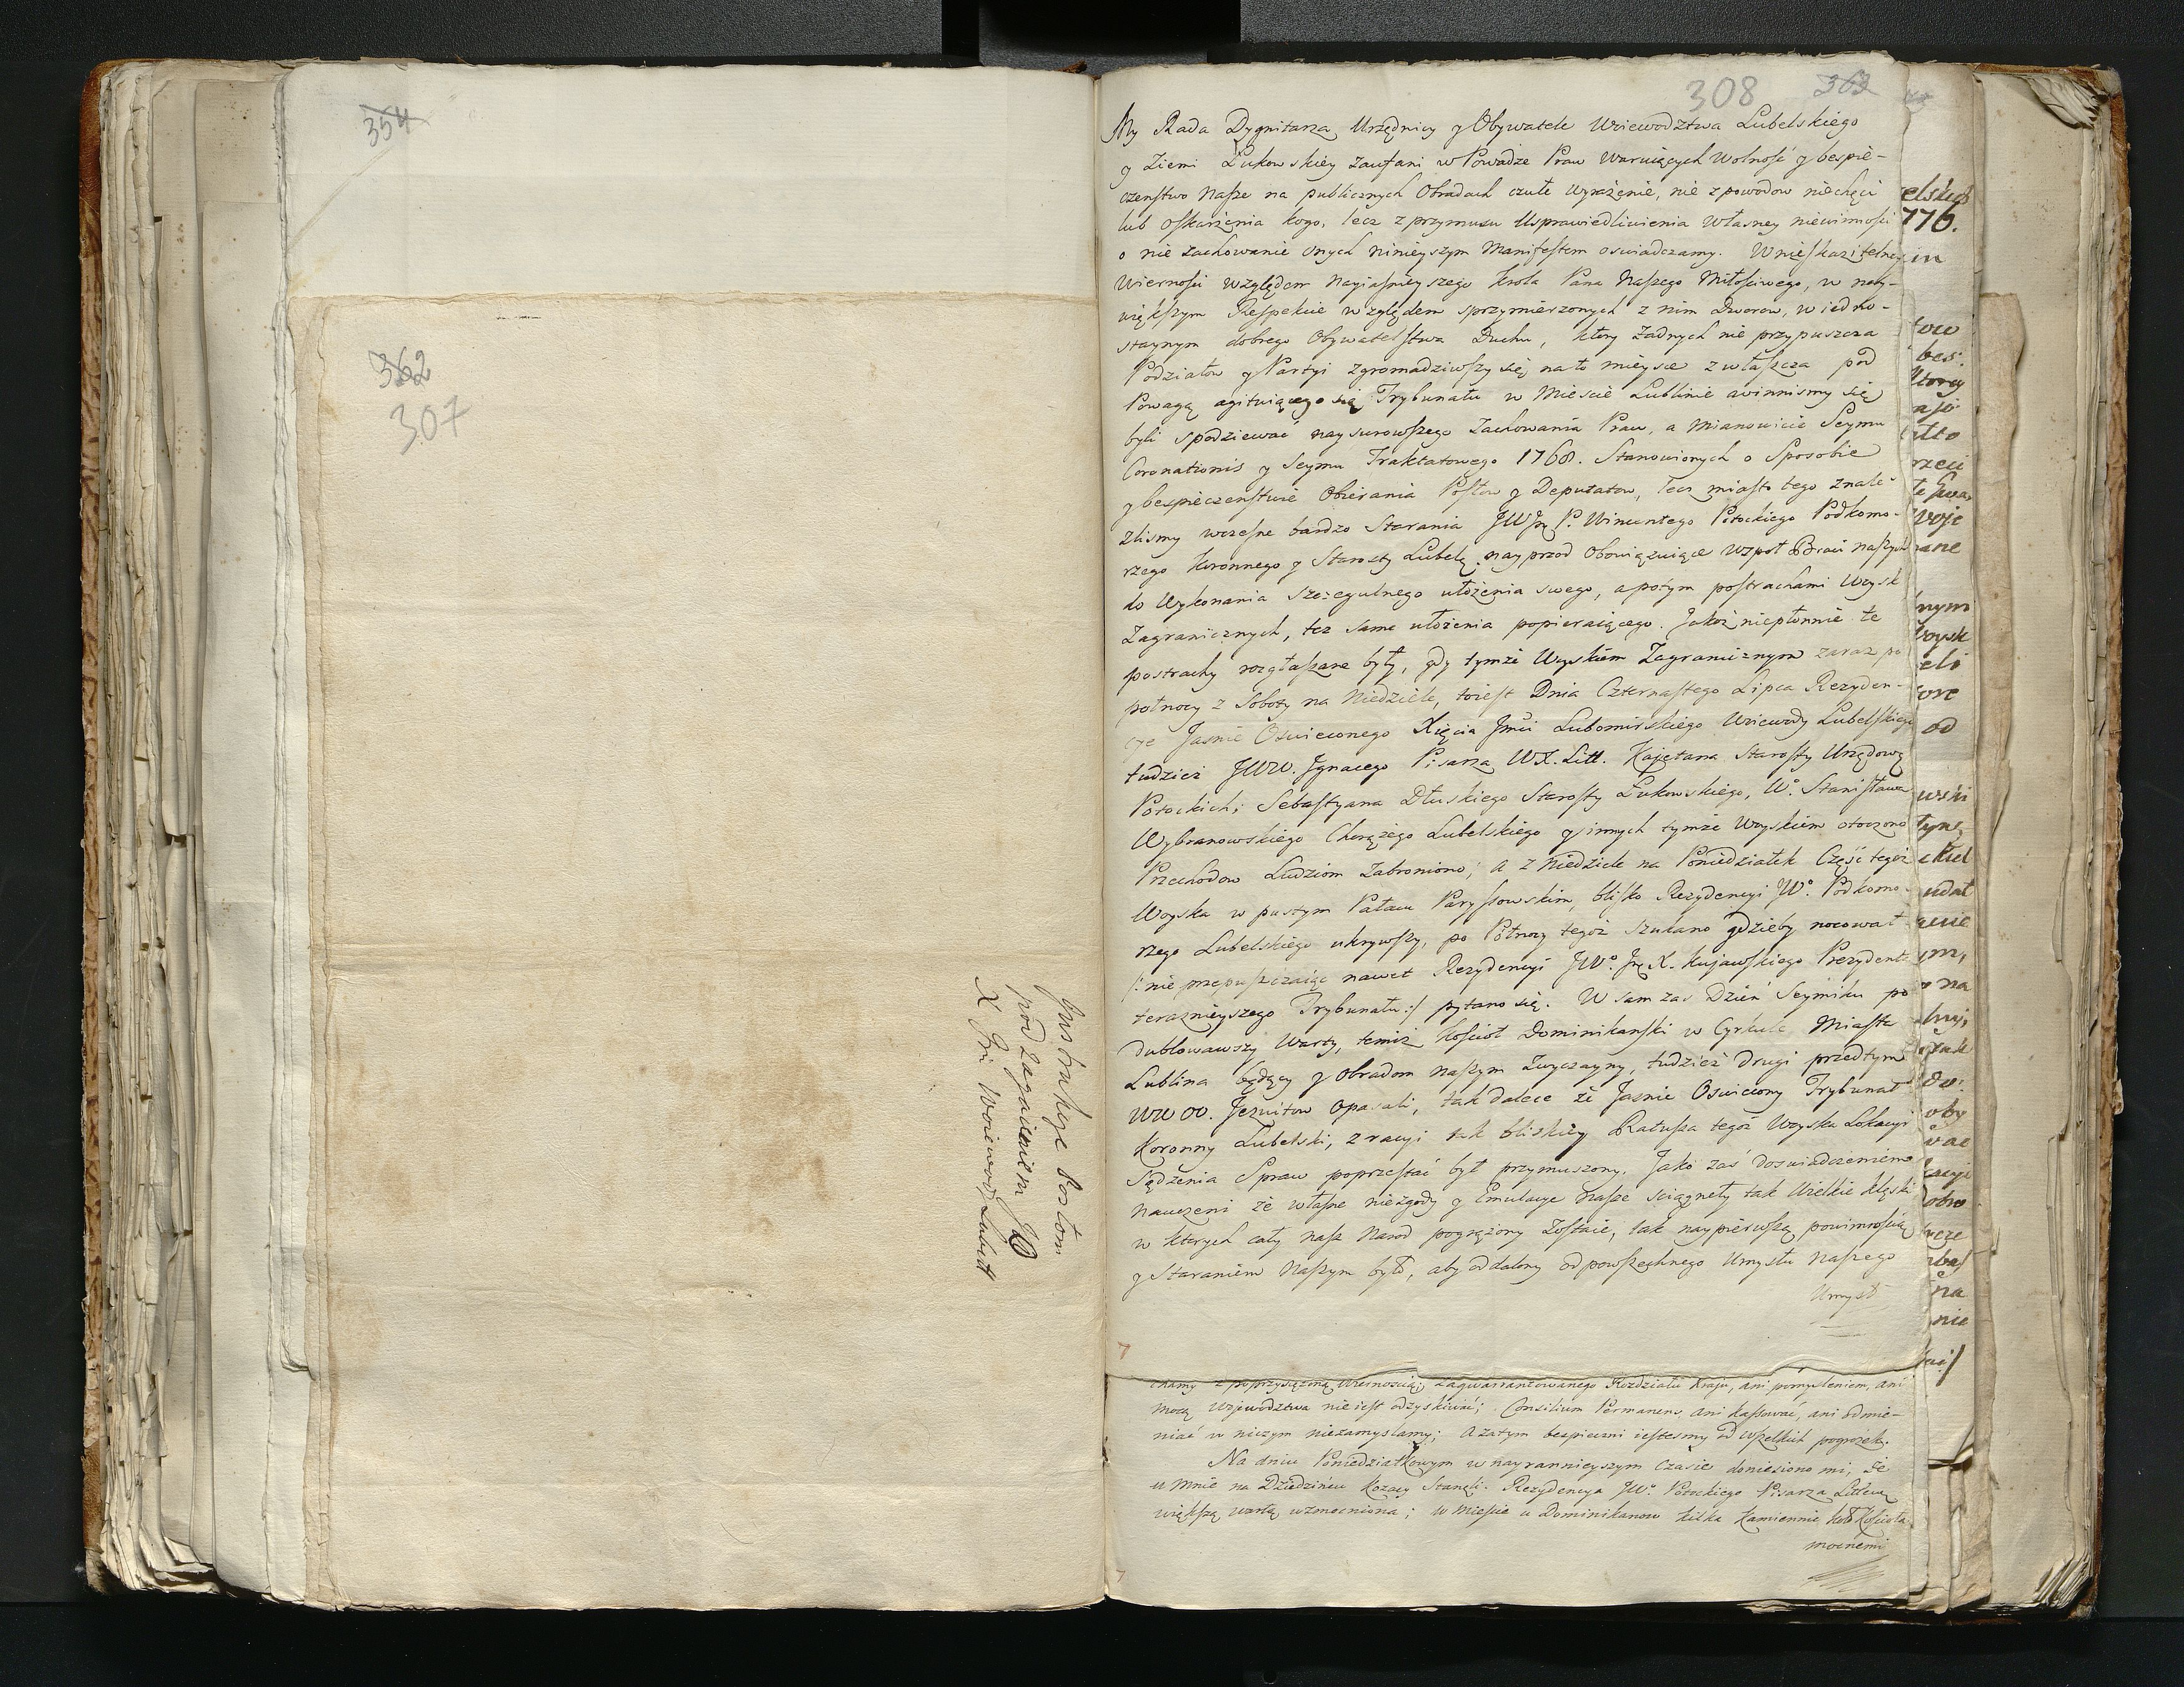 354
362
307
Instrukcye Posłom
pod zagaieniem JO
X Jmi Woiewody Lubell
308 363
My Rada Dygnitarze Urzędnicy y Obywatele Woiewodztwa Lubelskiego
y Ziemi Łukowskiey zaufani w Powadze Praw waruiących wolność y bespie-
czenstwo Nasze na publicznych Obradach czułe wyrażenie, nie z powodow niechęci
lub oskarżenia kogo, lecz z przymusu Usprawiedliwienia własney niewinności
o nie zachowanie onych ninieyszym Manifestem oswiadczamy. W nieskazitelney
wierności względem Nayiaśnieyszego Krola Pana Naszego Miłościwego, w nay-
większym Respekcie względem sprzymierzonych z nim Dworow, w iedno-
staynym dobrego Obywatelstwa Duchu, ktory żadnych nie przypuszcza
Podziałow y Partyi zgromadziwszy się na to mieysce zwłaszcza pod
Powagą agituiącego się Trybunału w Miescie Lublinie winnismy się
byli spodziewać naysurowszego Zachowania Praw, a mianowicie Seymu
Coronationis y Seymu Traktatowego 1768. Stanowionych o Sposobie
y bespieczenstwie Obierania Posłow y Deputatow, lecz miasto tego znale-
zlismy wczesne bardzo Starania JW Jmci P. Wincentego Potockiego Podkomo-
rzego Koronnego y Starosty Lubelg nayprzod Obowiązuiące wspoł Braci naszych
do Wykonania szczegulnego ułożenia swego, a potym postrachami Woysk
Zagranicznych, tez same ułożenia popieraiącego. Jakoż niepłonnie te
postrachy rozgłaszane były, gdy tymże Woyskiem Zagranicznym zaraz po
pułnocy z Soboty na Niedziele, toiest Dnia Czternastego Lipca Rezyden-
cye Jasnie Oswieconego Xięcia Jmci Lubomirskiego Woiewody Lubelskiego
tudziez JWW. Jgnacego Pisarza WX. Litt. Kajetana Starosty Urzędowg
Potockich; Sebastyana Dłuskiego Starosty Łukowskiego, Wo. Stanisława
Wybranowskiego Chorążego Lubelskiego y innych tymże woyskiem otoczono
Przechodow Ludziom zabroniono; a z Niedziele na Poniedziałek Część tegoż
Woyska w pustym Pałacu Parysowskim, blisko Rezydencyi Wo. Podkomo-
rzego Lubelskiego ukrywszy, po Połnocy tegoż szukano gdzieby nocował
/: nie przepuszczaiąc nawet Rezydencyi JWo. Jmci X. Kujawskiego Prezydent
teraznieyszego Trybunału :/ pytano się. W sam zas Dzień Seymiku po
dublowawszy Warty, temiż Kościoł Dominikanski w Cyrkule Miasta
Lublina będący y Obradom naszym Zwyczayny, tudzież drugi przedtym
WW OO. Jezuitow opasali, tak dalece że Jasnie Oswiecony Trybunał
Koronny Lubelski, z racyi tak bliskiey Ratusza tegoż Woyska Lokacyi
Sądzenia Spraw poprzestać był przymuszony. Jako zaś doswiadczeniem
nauczeni że własne niezgody y Emulacye nasze sciągneły tak Wielkie klęski
w ktorych cały nasz Narod pogrążony zostaie, tak naypierwszą powinnością
y Staraniem Naszym było, aby oddalony od powszechnego Umysłu Naszego
Umysł
chamy z poprzysiężoną wiernością; zagwarrantowanego Rozdziału Kraju, ani pomysleniem, ani
mocą Wojewodztwa nie iest odzyskiwać; Consilium Permanens ani kassować, ani odmie-
niać w niczym niezamyslamy; a zatym bespieczni iestesmy od wszelkich pogrożek.
Na dniu Poniedziałkowym w nayrannieyszym czasie doniesiono mi, że
u mnie na Dziedzincu Kozacy stanęli. Rezydencya JWo. Potockiego Pisarza Littewg
większą wartą wzmocniona; w Miescie u Dominikanow kilka Kamiennic koło Kościoła
mocnemi
elskieg
776.
in
tow
bes:
ktorey
rzeci
Woje
ane
nym
Woysk
eli
ore
od
wski
udał
anie
ym,
na
oby
wac
acyi
obro
na
nie